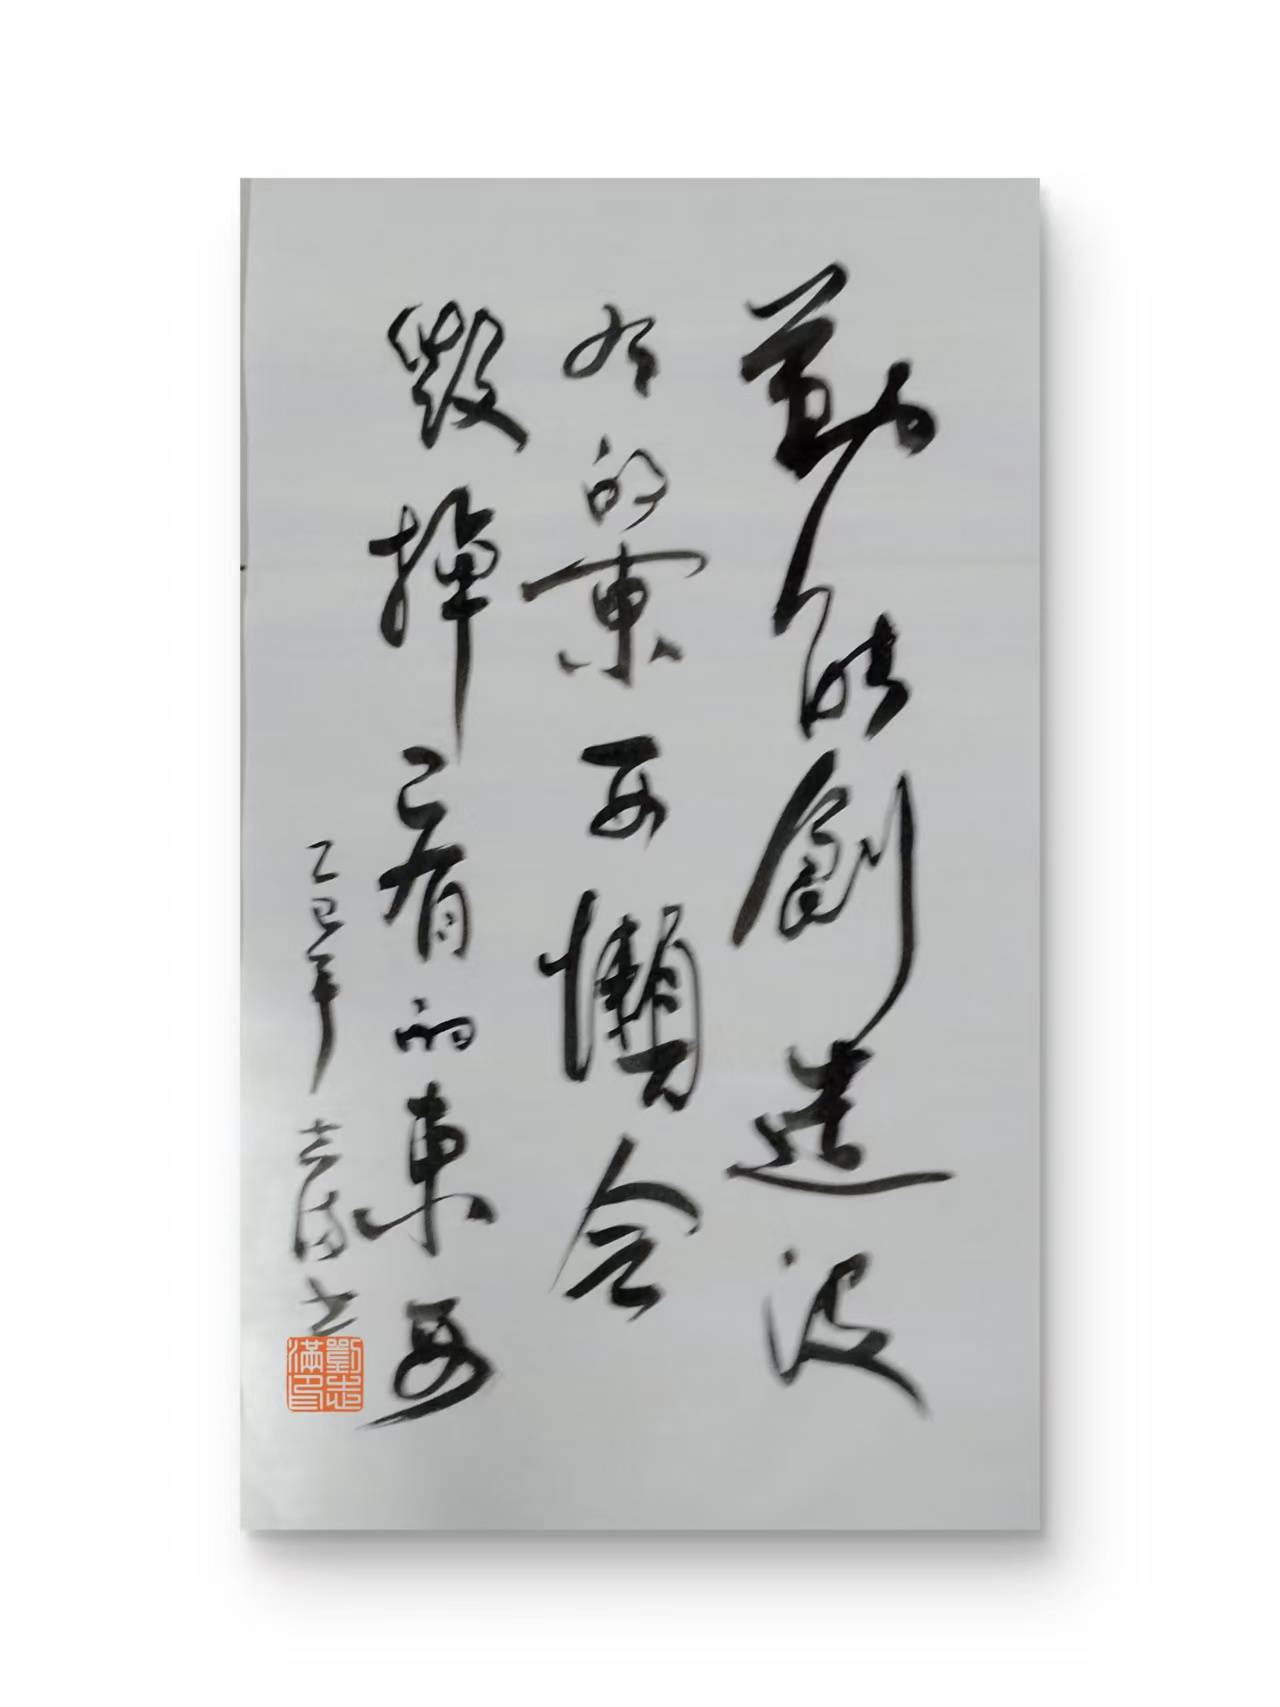 勤能創造没
有的東西懶会
毀掉已有的東西
乙巳年志滿书
劉志
滿印